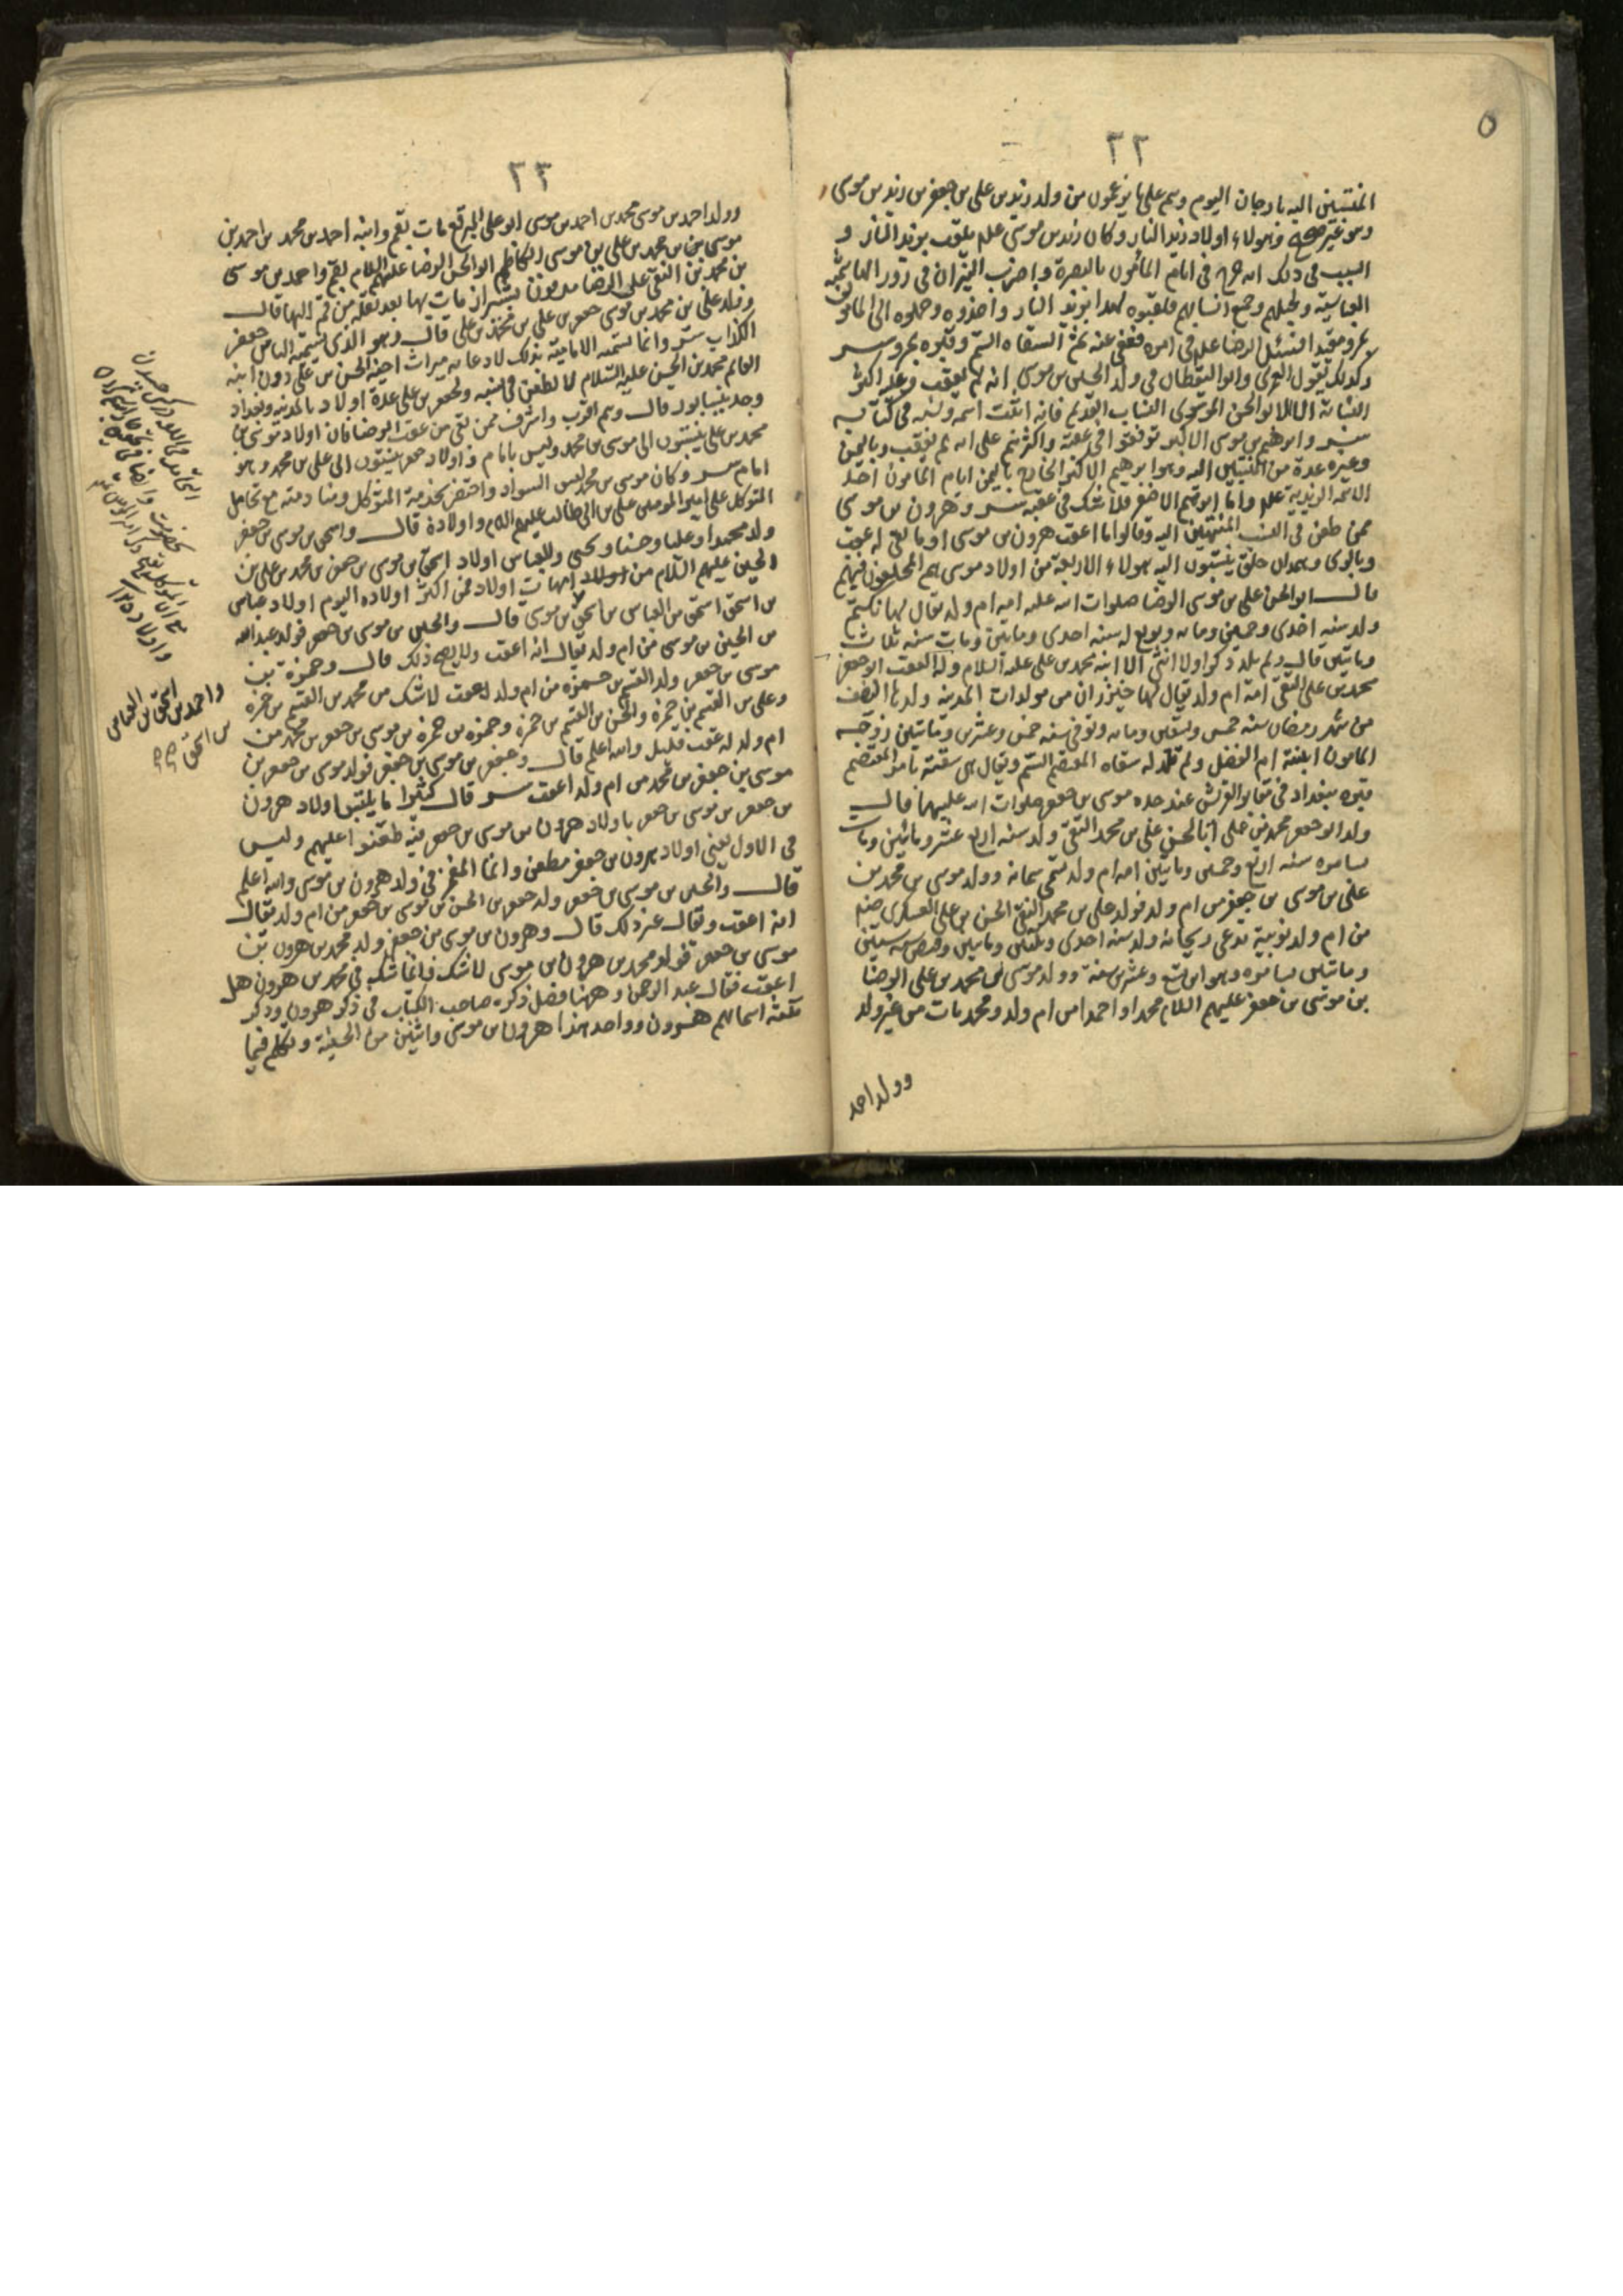 ٢٢
المنتسبين اليه بارجان اليوم وهم على ما يزعمون من ولد زيد بن على بن جعفر بن زيد بن موسى
وهو غير صحيح وهولاء اولاد زيد النار وكان زيد بن موسى علم يلقب بزيد النار و
السبب فى ذلك انه خرج فى ايام المأمون بالبصرة واضرب النيران فى دور الهاشمية
العباسية ونخيلهم وجميع اسبابهم فلقبوه لهذا بزيد النار واخذوه وحملوه الى المامون
بمرو مقيدا فسئل الرضا علم فى امره فعفى عنه ثم السقاه السم وقبره بمرو
وكذلك يقول العمرى وابو اليقظان فى ولد الحسين بن موسى انه لم يعقب وعليه اكثر
النسابة الا ابو الحسن الموسوى النساب القديم فانه اثبت اسمه ونسبه فى كتابه
وابرهيم بن موسى الاكبر توقفوا فى عقبه واكثرهم على انه لم يعقب وباليمن
وغيره عدة من المنتسبين اليه وهو ابرهيم الاكبر الخارج باليمن ايام المامون احد
الائمة الزيدية علم واما ابرهيم الاصغر فلا شك فى عقبه وهرون بن موسى
ممن طعن فى النسب المنتهين اليه وقالوا ما اعقب هرون بن موسى او ما بقى له عقب
وبالرى وهمدان خلق ينتسبون اليه هولاء الاربعة من اولاد موسى هم المختلفون فيهم
قال ابو الحسن على بن موسى الرضا صلوات الله عليه امه ام ولد يقال لها تكتم
ولد سنه احدى وخمسين ومائه وبويع له سنه احدى ومايتين ومات سنه ثلاث
ومايتين قال ولم يلد ذكرا ولا انثى الا ابنه محمد بن على عليه السلام وله العقب ابو جعفر
محمد بن على التقى امه ام ولد يقال لها خيزران من مولدات المدينه ولد فى النصف
من شهر رمضان سنه خمس وتسعين ومائه وتوفى سنه خمس وعشرين ومايتين زوجه
المامون ابنته ام الفضل ولم تلد له سقاه المعتصم السم ويقال هى سقته بامر المعتصم
قبره ببغداد فى مقابر القريش عند جده موسى بن جعفر صلوات الله عليهما قال
ولد ابو جعفر محمد بن على ابا الحسن على بن محمد النقى ولد سنه اربع عشر ومائتين ومات
بسامره سنه اربع وخمسين ومايتين امه ام ولد تسمى سمانه وولد موسى بن محمد بن
على بن موسى بن جعفر من ام ولد فولد على بن محمد النقى الحسن بن على العسكرى
من ام ولد نوبية تدعى ريحانه ولد سنه احدى وثلثين ومايتين وقبض سنه ستين
ومائتين بسامره وهو ابن تسع وعشرين سنة وولد موسى بن محمد بن على الرضا
بن موسى بن جعفر عليهم السلام محمدا واحمدا من ام ولد ومحمد مات من غير ولد
وولد احمد
٢٣
وولد احمد بن موسى محمد بن احمد بن موسى ابو على المبرقع مات بقم وابنه احمد بن محمد بن احمد بن
موسى بن محمد بن على بن موسى الكاظم ابو الحسن الرضا عليهم السلام بقم واحمد بن موسى
بن محمد بن النقى على الرضا مدفون بشيراز مات بها بعد نقله من قم اليها قال
وولد على بن محمد بن موسى جعفر بن على بن محمد بن على قال وهو الذى تسميه الناس جعفر
الكذاب وانما تسميه الامامية بذلك لادعائه ميراث اخيه الحسن بن على دون ابنه
القائم محمد بن الحسن عليه السلام لا لطعن فى نسبه ولجعفر بن على عدة اولاد بالمدينه وبغداد
وجد بنيسابور قال وهم اقرب واشرف ممن بقى من عقب الرضا فان اولاد موسى بن
محمد بن على ينتسبون الى موسى بن محمد وليس بامام واولاد جعفر ينتسبون الى على بن محمد وهو
امام وكان موسى بن محمد لبس السواد واختص بخدمة المتوكل ومنادمته مع تحامل
المتوكل على امير المومنين على بن ابى طالب عليهم السلام واولاده قال واسحق بن موسى بن جعفر
ولد محمدا وعليا وحسنا ويحيى وللعباس اولاد اسحق بن موسى بن جعفر بن محمد بن على بن
الحسين عليهم السلام من امهات اولاد فمن اكثر اولاده اليوم اولاد عباس
بن اسحق اسحق بن العباس بن اسحق بن موسى قال والحسين بن موسى بن جعفر فولد عبدالله
بن الحسين بن موسى من ام ولد يقال انه اعقب ولا يصح ذلك قال وحمزة بن
موسى بن جعفر ولد القسم بن حمزه من ام ولد اعقب لا شك من محمد بن القسم بن حمزه
وعلى بن القسم بن حمزه والحسن بن القسم بن حمزه وحمزه بن حمزه بن موسى بن جعفر بن محمد من
ام ولد له عقب قليل والله اعلم قال وجعفر بن موسى بن جعفر فولد موسى بن جعفر بن
موسى بن جعفر بن محمد من ام ولد اعقب قال كثيرا ما يلتبس اولاد هرون
بن جعفر بن موسى بن جعفر باولاد هرون بن موسى بن جعفر فيه طعنوا عليهم وليس
فى الاول يعنى اولاد هرون بن جعفر مطعن وانما المغمز فى ولد هرون بن موسى والله اعلم
قال والحسن بن موسى بن جعفر ولد جعفر بن الحسن بن موسى بن جعفر من ام ولد يقال
انه اعقب ويقال غير ذلك قال وهرون بن موسى بن جعفر ولد محمد بن هرون بن
موسى بن جعفر فولد محمد بن هرون بن موسى لا شك فانما شك فى محمد بن هرون هل
اعقب فقال عبد الرحمن وههنا فصل ذكره صاحب الكتاب فى ذكر هرون وذكر
ثلثه اسمائهم هرون وواحد هذا هرون بن موسى واثنين من الحسينة وتكلم فيما
واحمد بن اسحق بن العباس
بن اسحق